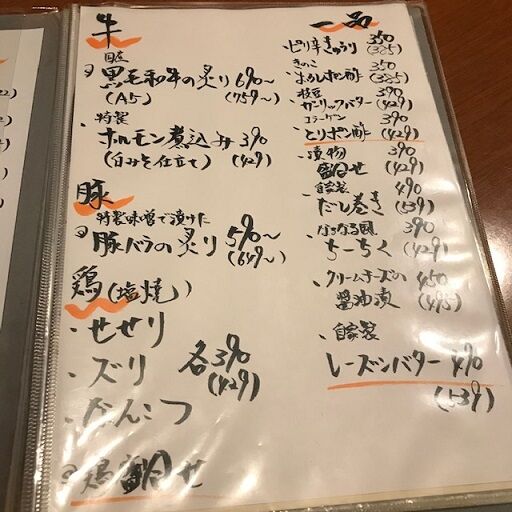 牛
国産
黒毛和牛の炙り 690〜
(A5) (759〜)
特製
ホルモン煮込み 390
(白みそ仕立て) (429)
豚
特製味噌で漬けた
豚バラの炙り 590〜
(649〜)
鶏(塩焼)
、せせり
、ズリ 各390
(429)
、なんこつ
鶏盛合せ
一品
、ピリ辛きゅうり 350
(385)
きのこ 350
、おろしポン酢 (385)
枝豆 390
、ガーリックバター (429)
コラーゲン 390
、とりポン酢 (429)
、漬物 390
盛合せ (429)
自家製 490
、だし巻き (539)
390
、ちーちく (429)
、クリームチーズの 450
醤油漬 (495)
、自家製
レーズンバター 490
(539)